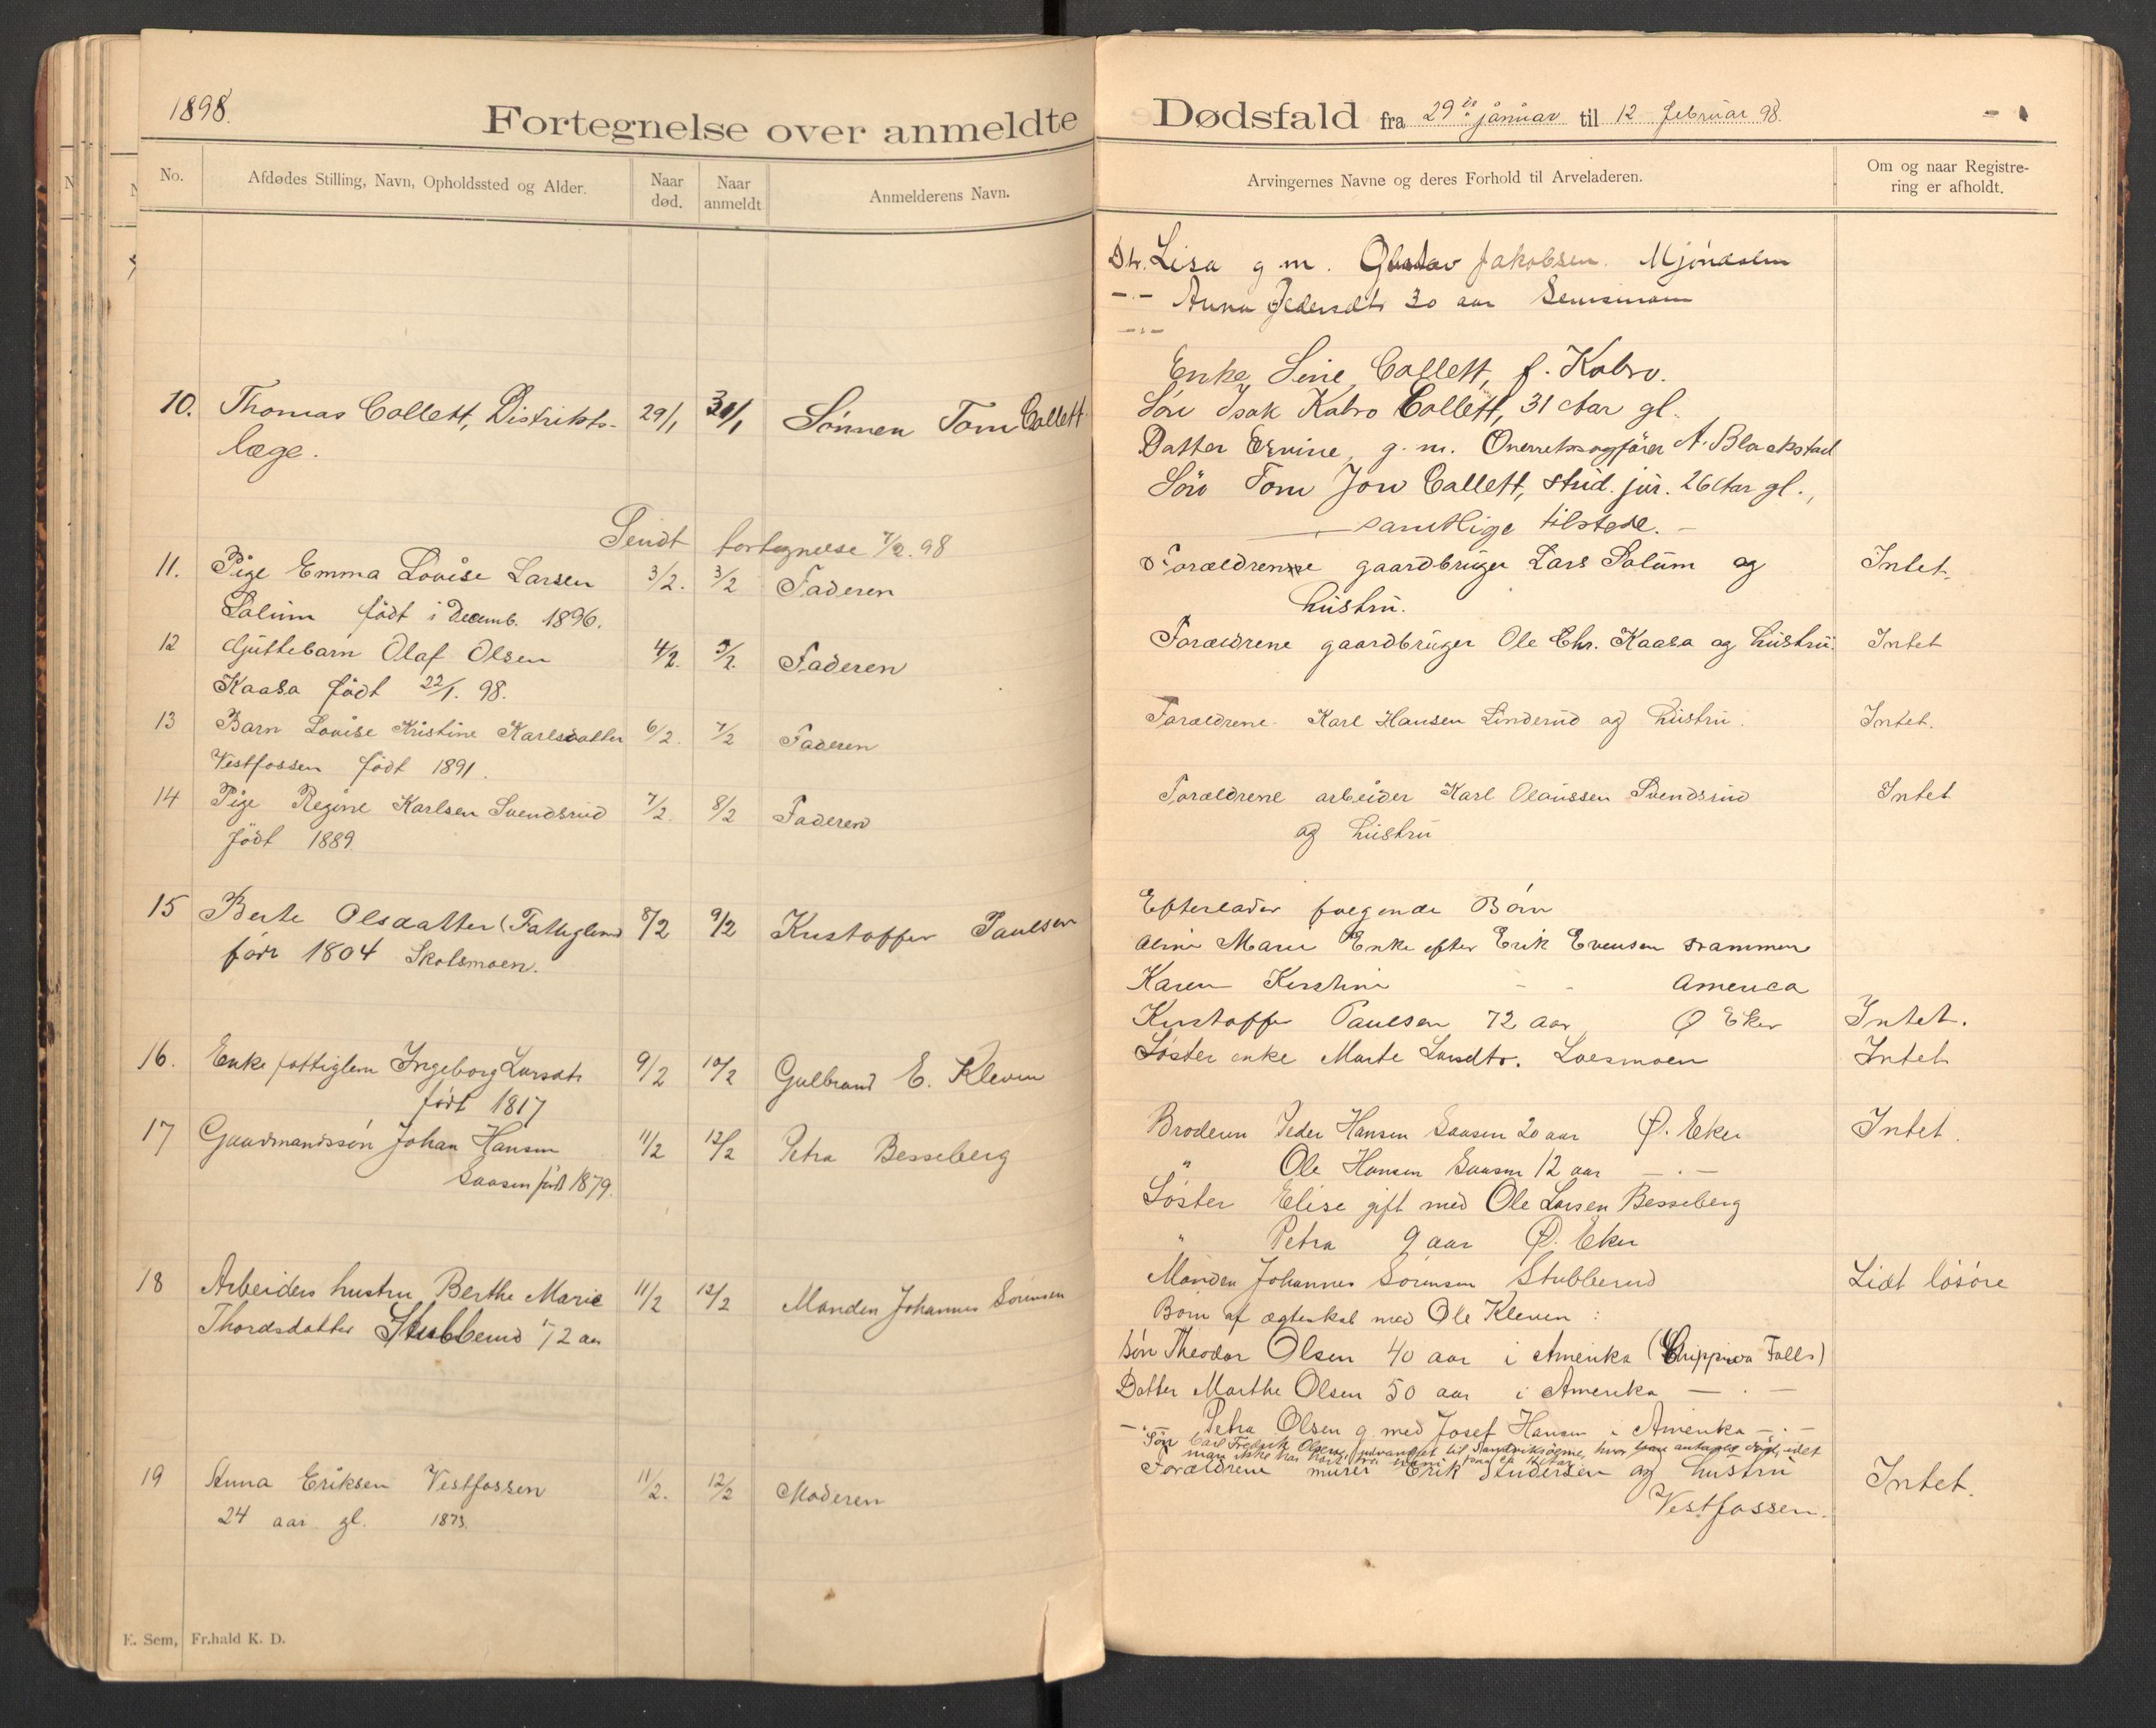 1898.
Fortegnelse over anmeldte
No.
Afdødes Stilling, Navn, Opholdssted og Alder.
Naar død.
Naar anmeldt
Anmelderens Navn.
10. Thomas Collett, Distrikts- 29/1 31/1 Sønnen Tom Collett
læge.
Sendt fortegnelse 7/2. 98
11. Pige Emma Lovise Larsen 3/2. 3/2 Faderen
Solum født i Decemb. 1896.
12 Guttebarn Olaf Olsen 4/2. 5/2. Faderen
Kaasa født 22/1. 98.
13 Barn Lovise Kristine Karlsdatter 6/2. 7/2 Faderen
Vestfossen født 1891.
14 Pige Regine Karlsen Svendsrud 7/2. 8/2 Faderen
født 1889.
15 Berte Olsdatter (Fattiglem) 8/2 9/2 Kristoffer Paulsen
født 1804 Skotsmoen.
16. Enke fattiglem Ingeborg Larsdtr 9/2 10/2 Gulbrand E. Kleven
født 1817
17 Gaardmandssøn Johan Hansen 11/2 12/2 Petra Besseberg
Saasen født 1879.
18 Arbeiders hustru Berthe Marie 11/2 12/2 Manden Johannes Sørensen
Thordsdatter Stubberud 72 aar
19 Anna Eriksen Vestfossen 11/2. 12/2 Moderen
24 aar gl. 1873.
E. Sem, Fr.hald K. D.
Dødsfald fra 29de januar til 12 februar 98.
Arvingernes Navne og deres Forhold til Arveladeren.
Om og naar Registrering er afholdt.
Dtr. Lisa g. m. Gustav Jakobsen. Mjøndalen
-"- Anna Pedersdtr 30 aar
-"-
Enke Line Collett, f. Kabro.
Søn Isak Kabro Collett, 31 Aar gl.
Datter g. m. Overretssagfører A. Blackstad
Søn Tom Jon Collett, stud. jur. 26 Aar gl.,
samtlige tilstede. -
Forældrene gaardbruger Lars Solum og Intet.
hustru.
Forældrene gaardbruger Ole Chr. Kaasa og hustru. Intet
Forældrene Karl Hansen Linderud og hustru. Intet.
Forældrene arbeider Karl Olaussen Svendsrud Intet
og hustru
Efterlader følgende Børn
Marie Enke efter Erik Evensen Drammen
Karen Kirstine - - America
Kristoffer Paulsen 72 aar Ø Eker Intet.
Søster enke Marte Larsdtr. Loesmoen Intet
Broderen Peder Hansen Saasen 20 aar Ø. Eker Intet.
" Ole Hansen Saasen 12 aar -.-
Søster Elise gift med Ole Larsen Besseberg
" Petra 9 aar Ø. Eker
Manden Johannes Sørensen Stubberud Lidt løsøre
Børn af ægteskab med Ole Kleven :
Søn Theodor Olsen 40 aar i Amerika (Chippiwa Falls)
Datter Marthe Olsen 50 aar i Amerika -.-
-"- Petra Olsen g. med Josef Hansen i Amerika -.-
Søn Carl Fredrik Olsen, udvandret til Sandviksøerne, hvor han antages død, idet
man ikke har hørt fra ham paa
Forældrene murer Erik Andersen og hustru Intet.
Vestfossen.